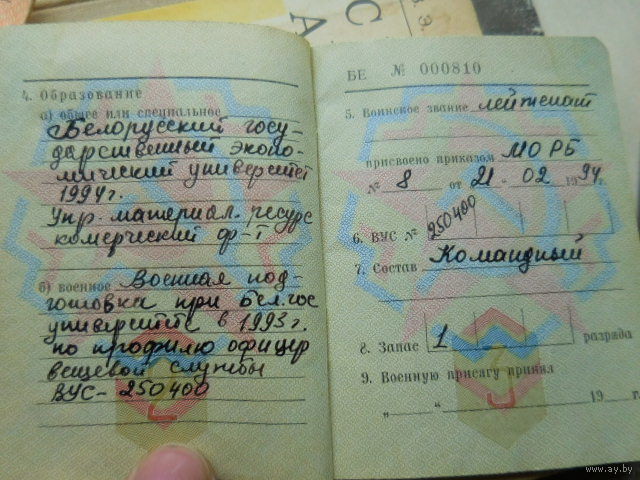 С
А
З.
4. Образование
а) общее или специальное
Белорусский госу-
дарственный эконо-
мический университет
1994г.
Упр. материал. ресурс
комерческий ф-т
б) военное Военная под-
готовка при Бел.гос
университете в 1993г.
по профилю офицер
вещевой службы
ВУС-250400
БЕ № 000810
5. Воинское звание лейтенант
присвоено приказом МО РБ
№ 8 от 21-02 1994г.
6. ВУС № 250400
7. Состав Командный
8. Запас 1 разряда
9. Военную присягу принял
„ “ 19 г.
www.ay.by